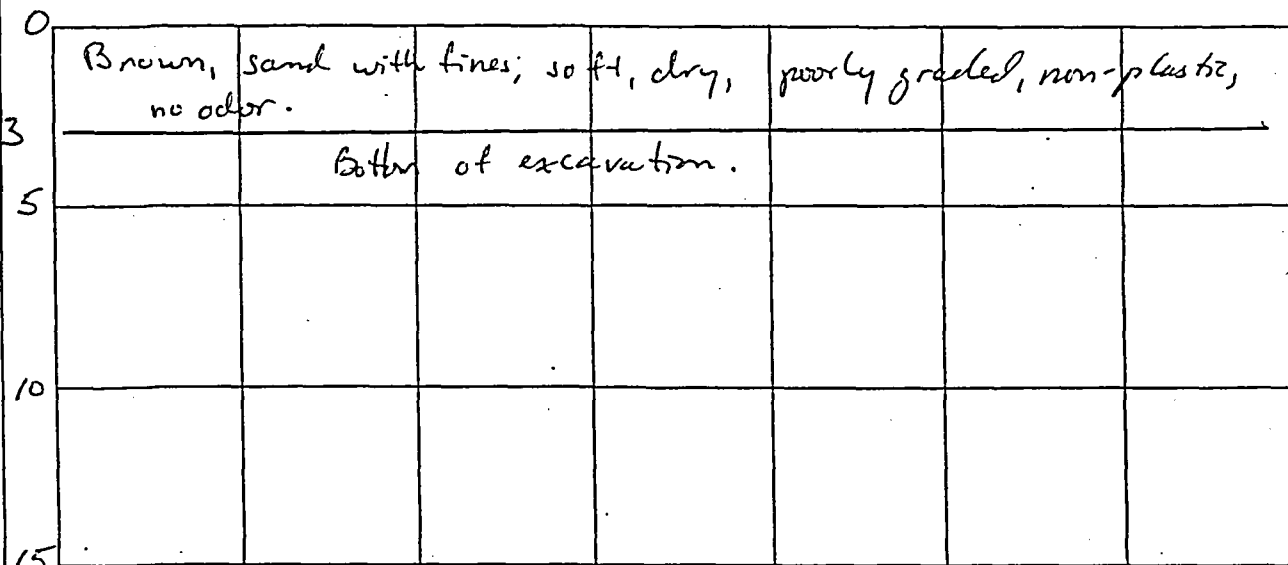 0
Brown, sand with fines; soft, dry, poorly graded, non-plastic,
no odor.
3
Bottom of excavation.
5
10
15